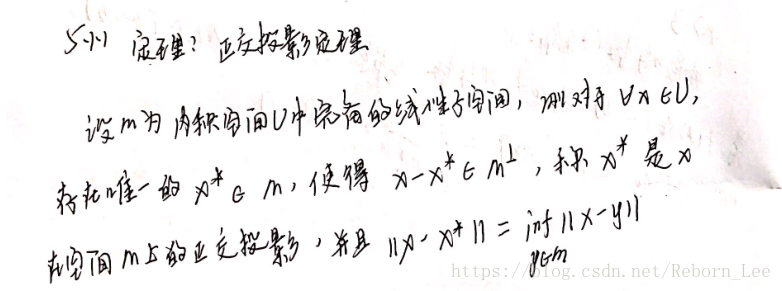 5.4.1 定理:正交投影定理
设m为内积空间U中完备的线性子空间,则对于∀x∈U,
存在唯一的x*∈m,使得x-x*∈m⊥,称x*是x
在空间m上的正交投影,并且||x-x*||=inf||x-y||
y∈m
https://blog.csdn.net/Reborn_Lee